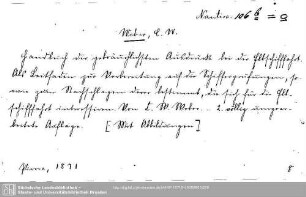 Nautica. 106 b = a
Weber, C. W.
Handbuch der gebräuchlichsten Ausdrücke bei der Elbschifffahrt.
Als Leitfaden zur Vorbereitung auf die Schifferprüfungen, so-
wie zum Nachschlagen denen bestimmt, die sich für die Elb-
schifffahrt interessieren. Von C. W. Weber. 2. völlig umgear-
beitete Auflage. [Mit Abbildungen]
Pirna, 1871
8
Sächsische Landesbibliothek -
Staats- und Universitätsbibliothek Dresden